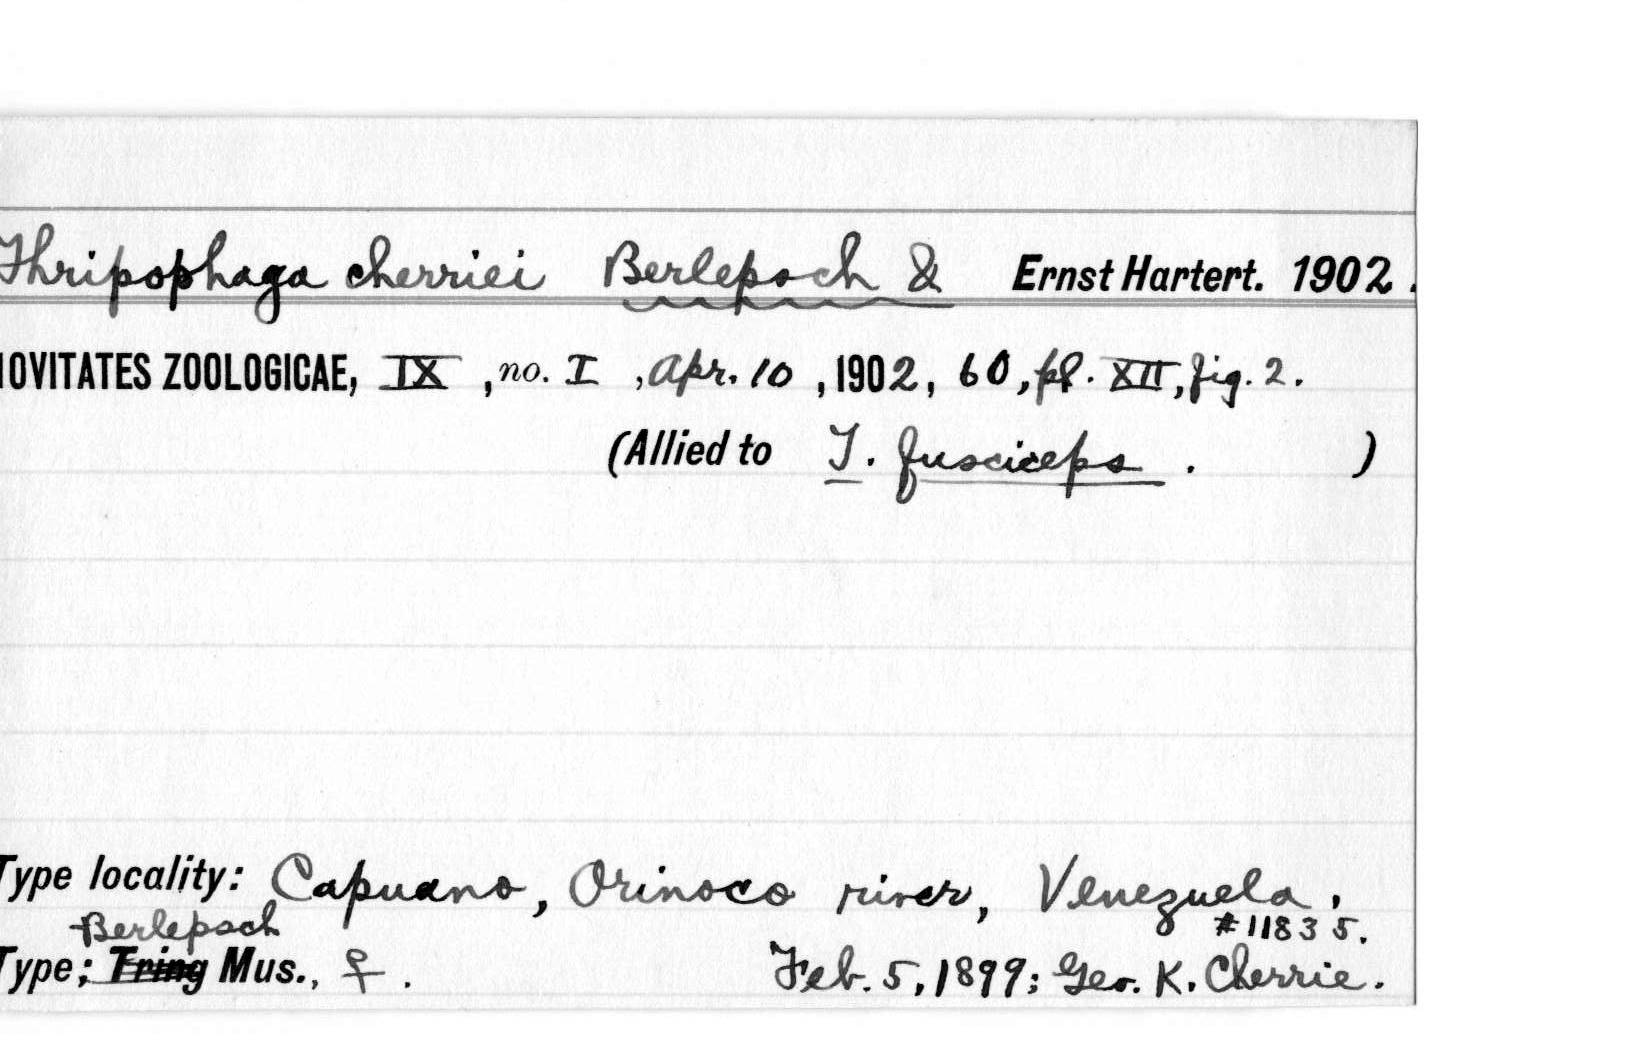 Thripophaga cherriei Berlepsch & Ernst Hartert. 1902.
NOVITATES ZOOLOGICAE, IX, no. I, Apr. 10, 1902, 60, pl. XII, fig. 2.
(Allied to T. fusciceps. )
Type locality: Capuano, Orinoco river, Venezuela.
Berlepsch #11835.
Type; Tring Mus., ♀. Feb. 5, 1899; Geo. K. Cherrie.